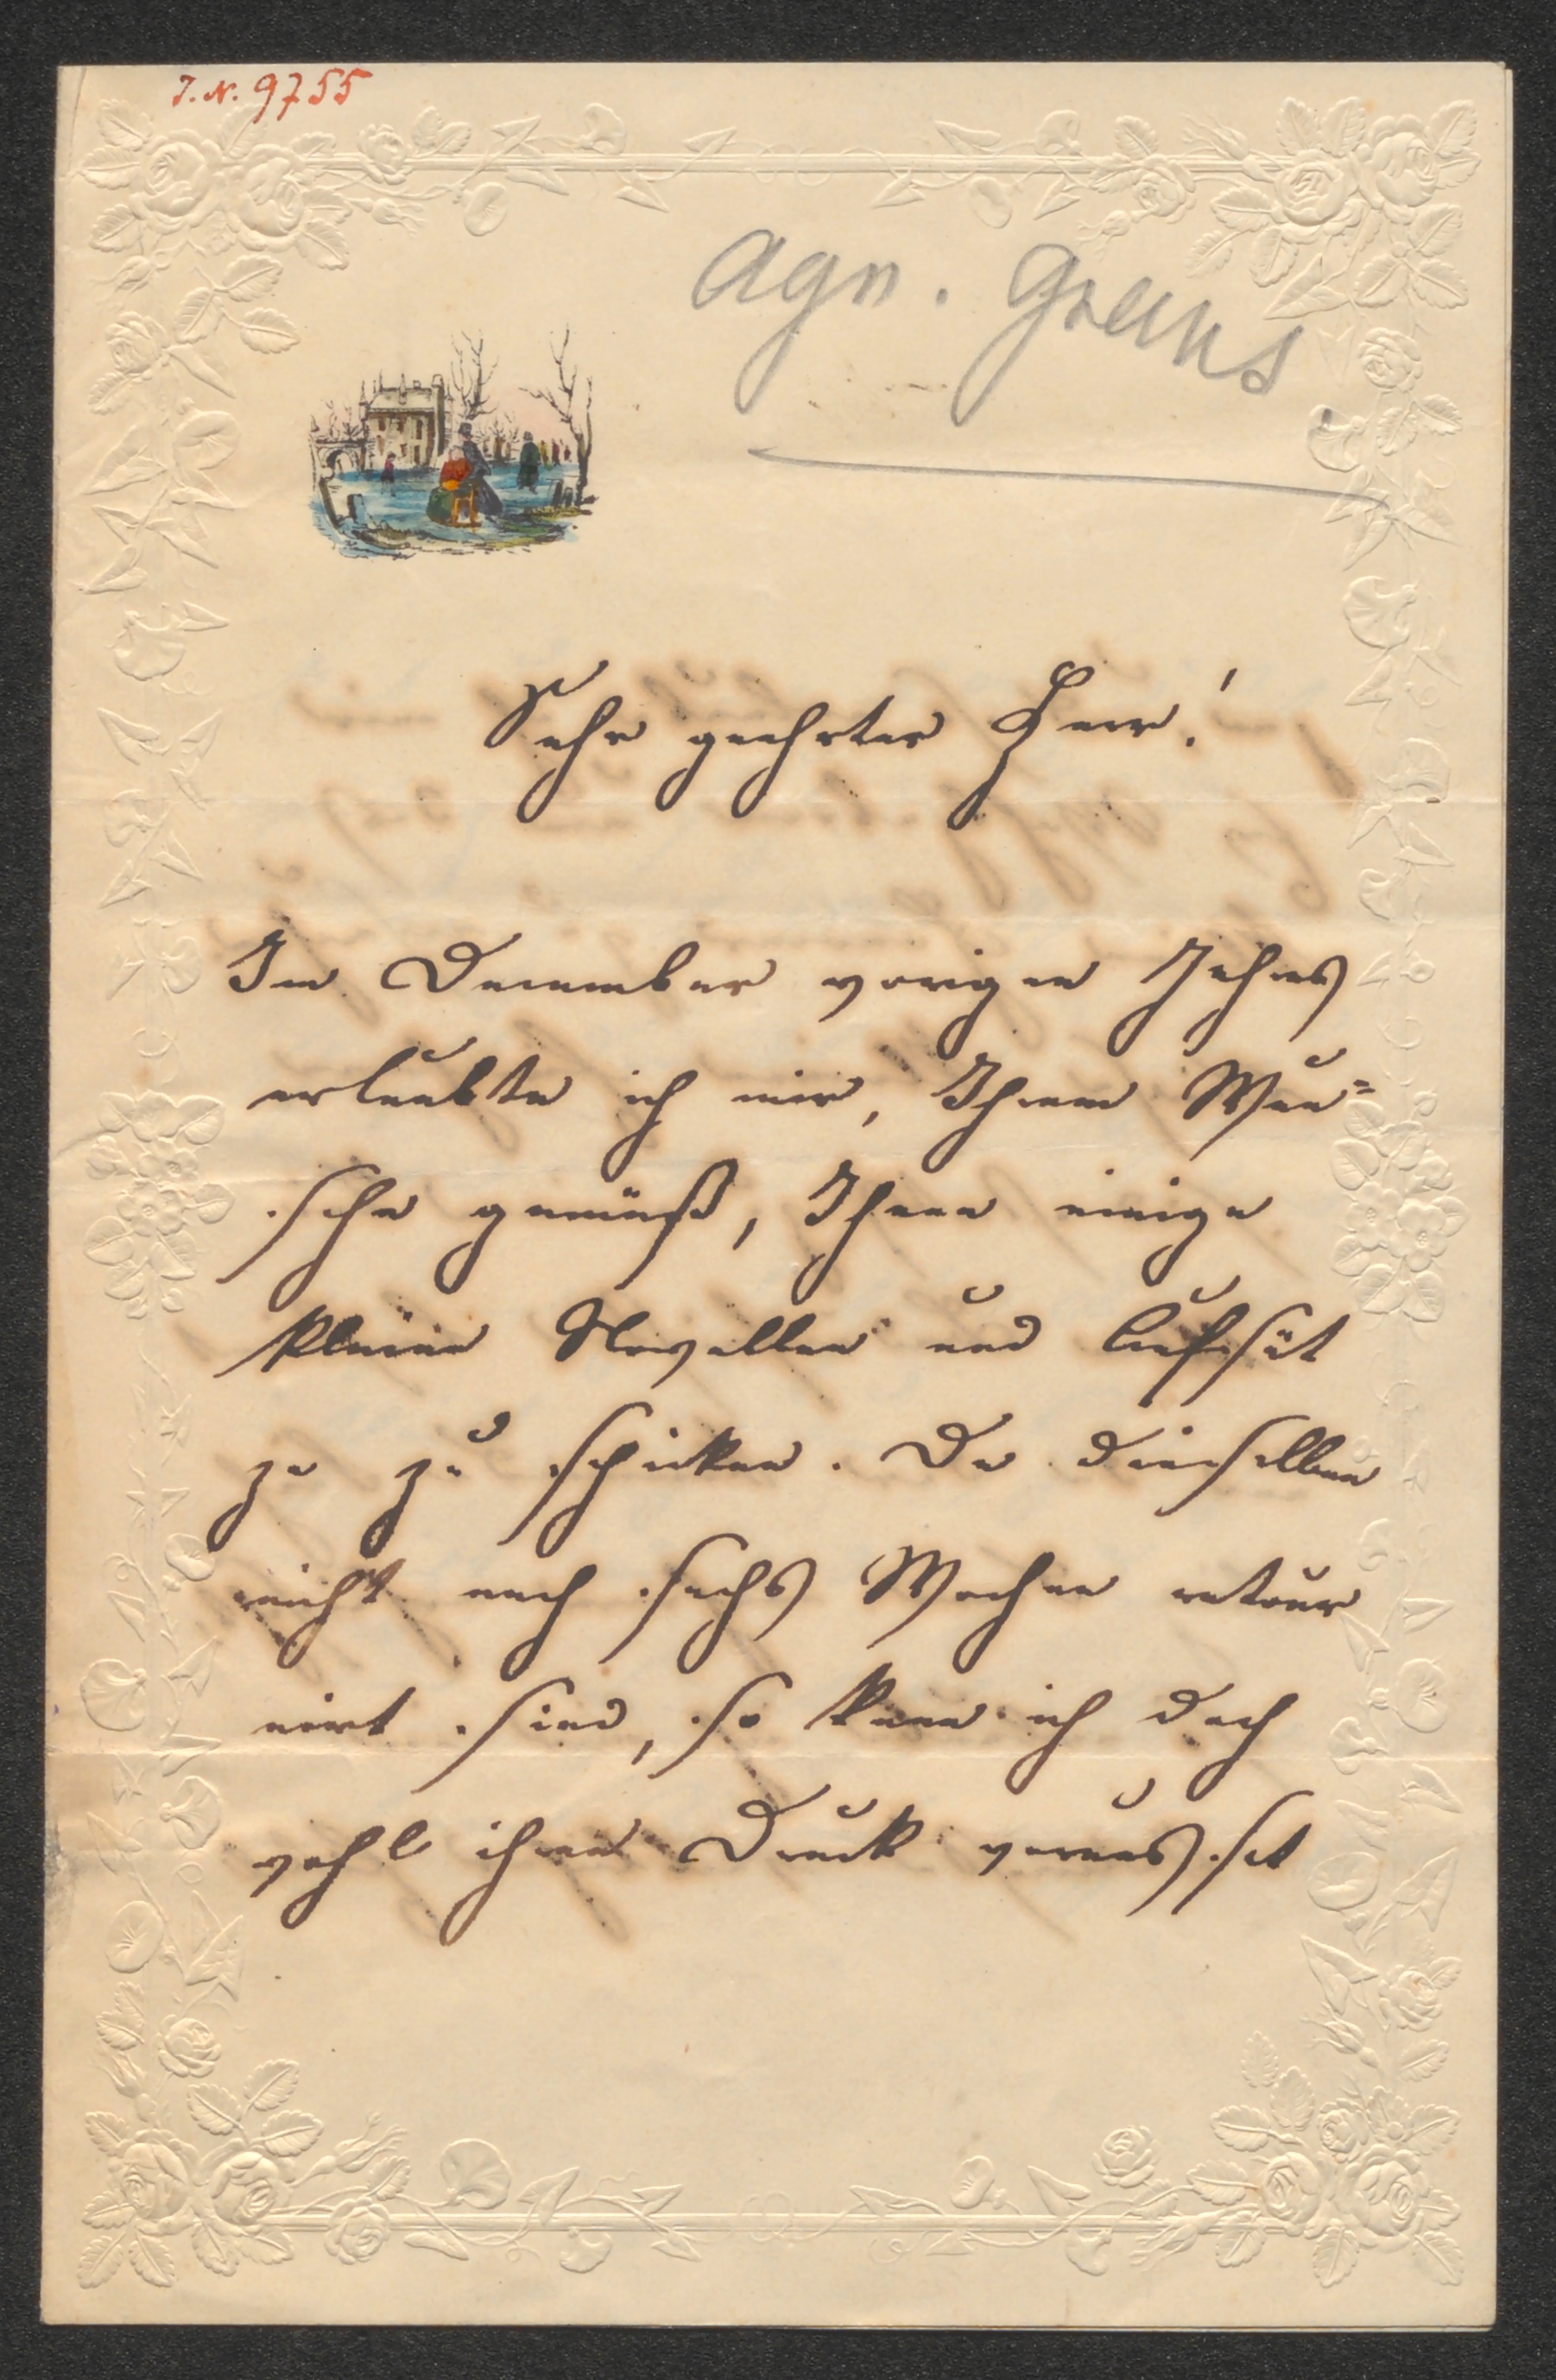 I. N. 9755
Agn. Grans
Sehr geehrter Herr!
Im December vorigen Jahres
erlaubte ich mir, Ihrem Wun=
sche gemäß, Ihnen einige
kleine Novellen und Aufsät
ze zu schicken. Da dieselben
nicht nach sechs Wochen retour
nirt sind, so kann ich doch
wohl ihren Druck voraus set